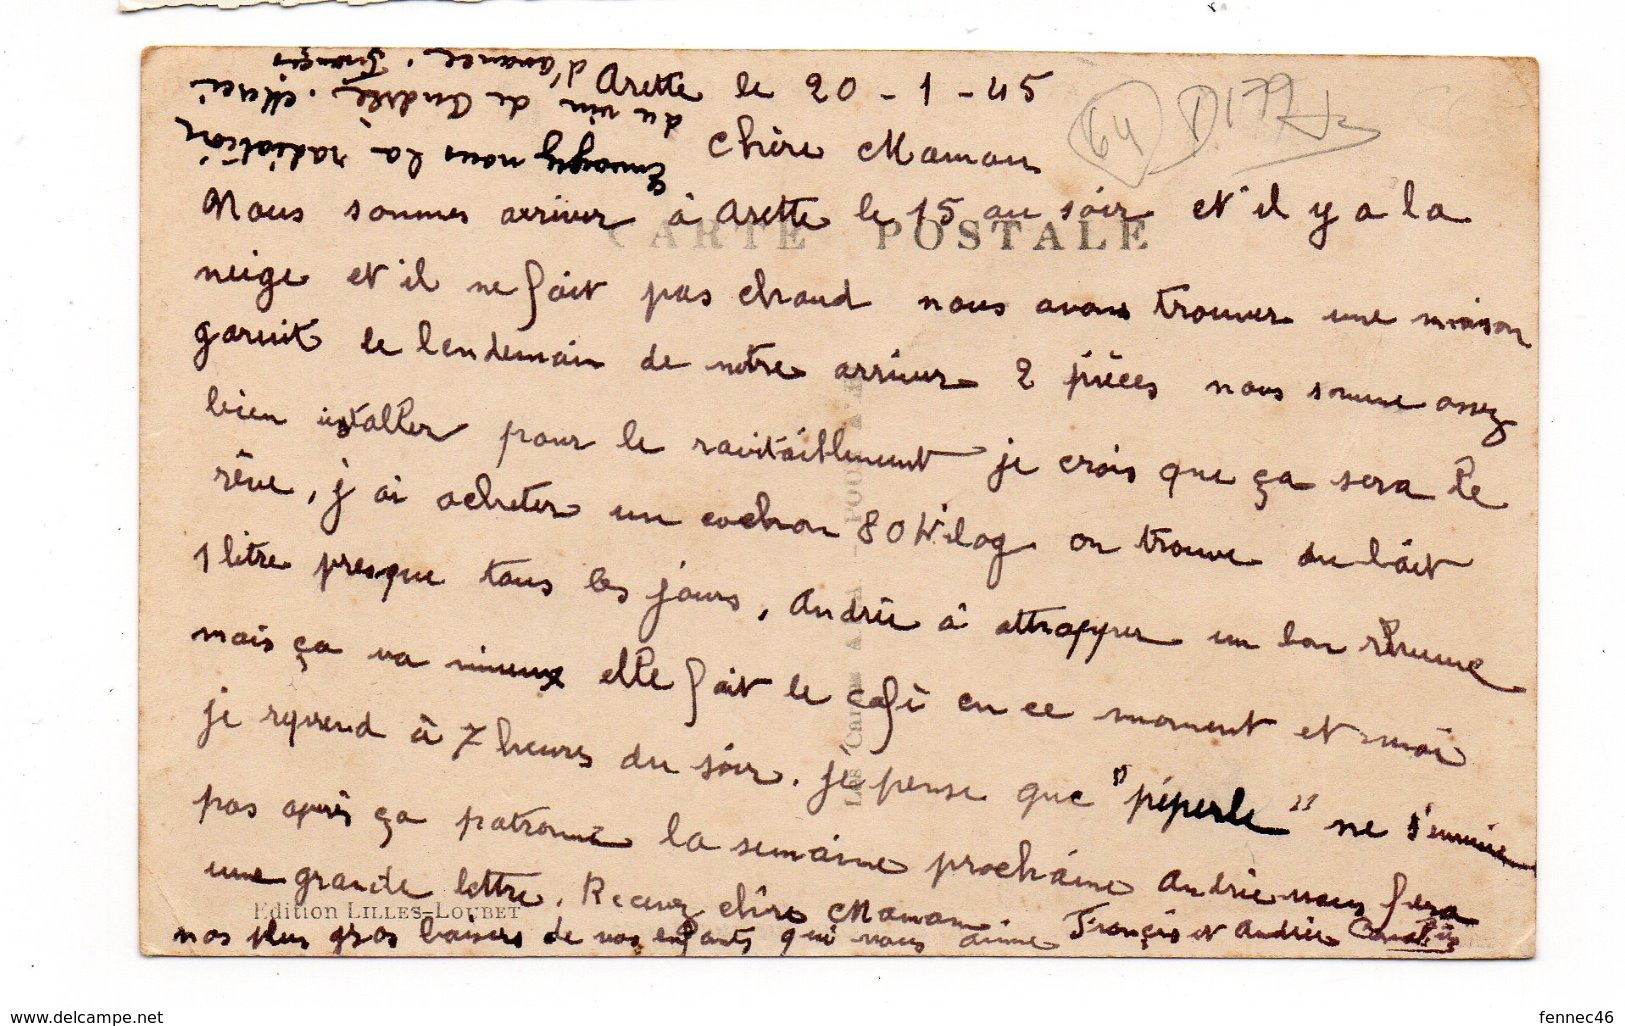 Arette le 20-1-45
64 D179
Chère Maman
Nous sommes arriver à Arette le 15 au soir et il y a la
CARTE POSTALE
neige et il ne fait pas chaud nous avons trouver une maison
garnit le lendemain de notre arriver 2 pièces nous somme assez
bien istaller pour le ravitaillement je crois que ça sera le
rêve, j'ai acheter un cochon 80 Kilog on trouve du lait
1 litre presque tous les jours, Andrée à attrapper un bon rhume
mais ça va mieux elle fait le café en ce moment et moi
je reprend à 7 heures du soir. Je pense que "péperle" ne s'ennuie
pas après ça patronne la semaine prochaine Andrée vous fera
une grande lettre. Recevez chère Maman
Edition LILLES-LOUBET
nos plus gros baisers de vos enfants qui vous aime François et Andrée
Envoyez nous la radiation
du vin de Andrée. Merci
d'avance. François